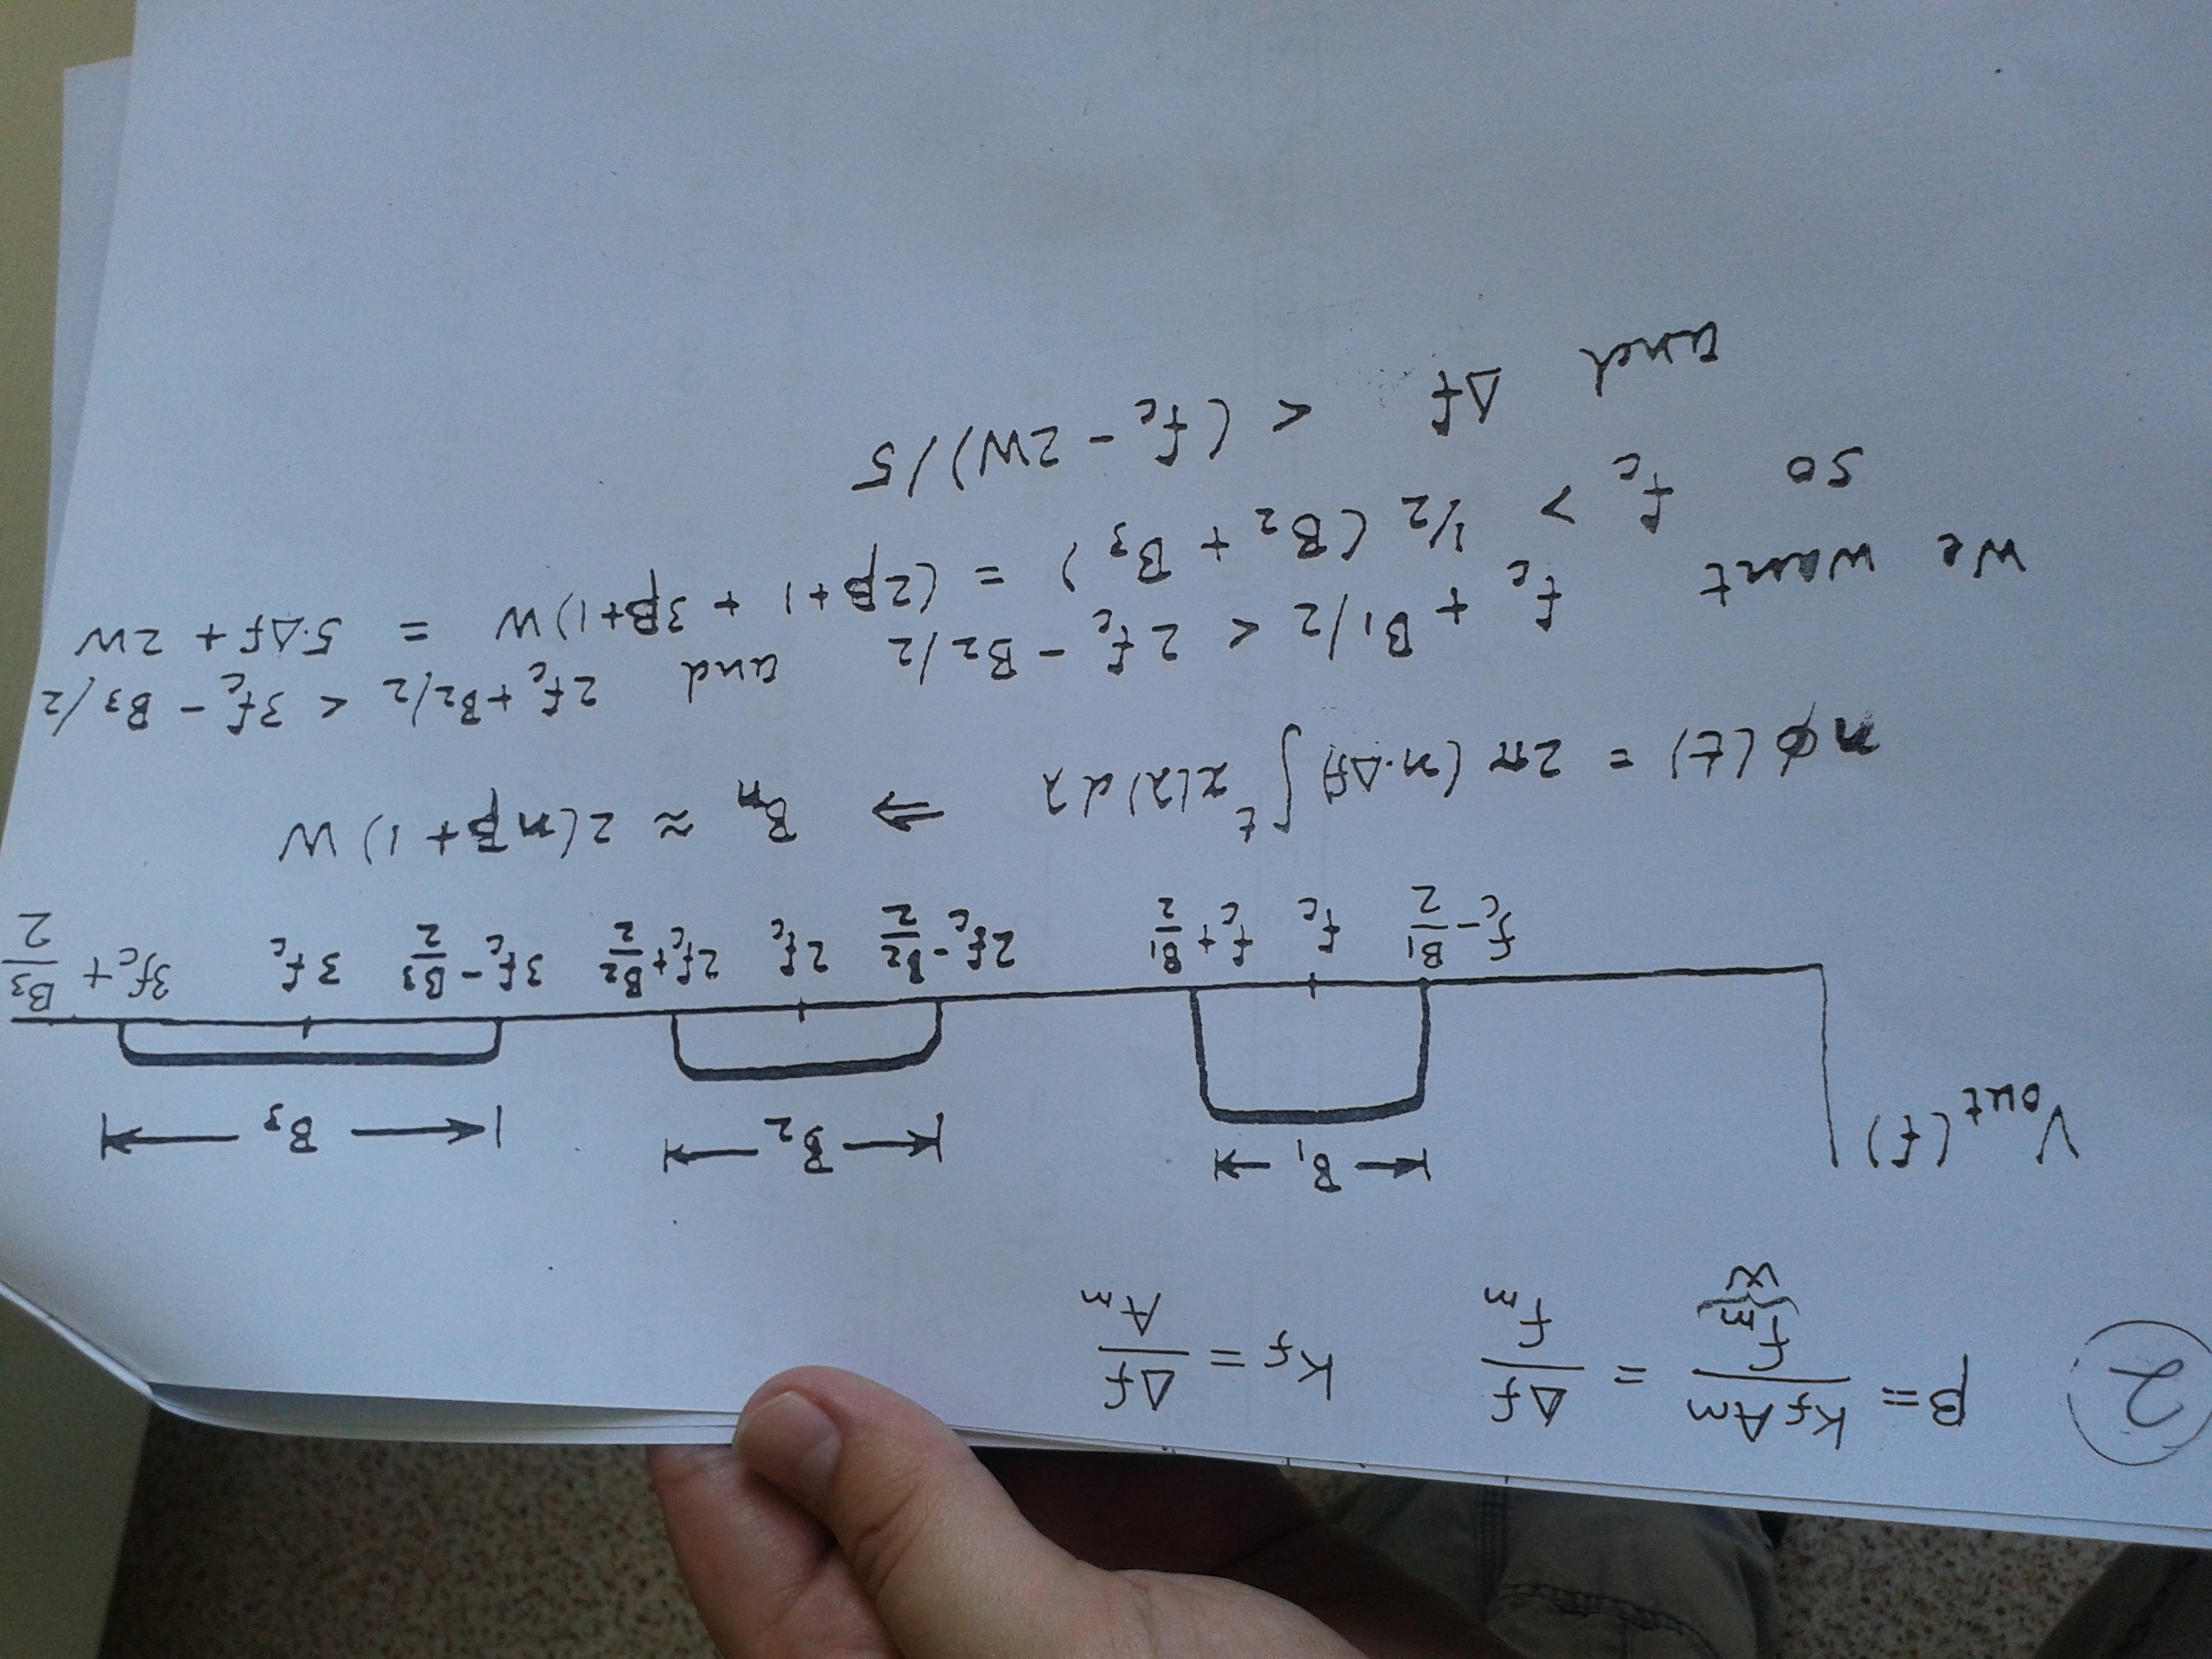 2
β = KfAm / fm = Δf / fm    Kf = Δf / Am
W
Vout(f)
B1    B2    B3
fc - B1/2    fc    fc + B1/2    2fc - B2/2    2fc    2fc + B2/2    3fc - B3/2    3fc    3fc + B3/2
nϕ(t) = 2π(n·Δf)∫^t x(λ)dλ ⇒ Bn ≈ 2(nβ+1)W
We want fc + B1/2 < 2fc - B2/2 and 2fc + B2/2 < 3fc - B3/2
so fc > 1/2 (B2 + B3) = (2β+1 + 3β+1)W = 5·Δf + 2W
and Δf < (fc - 2W)/5